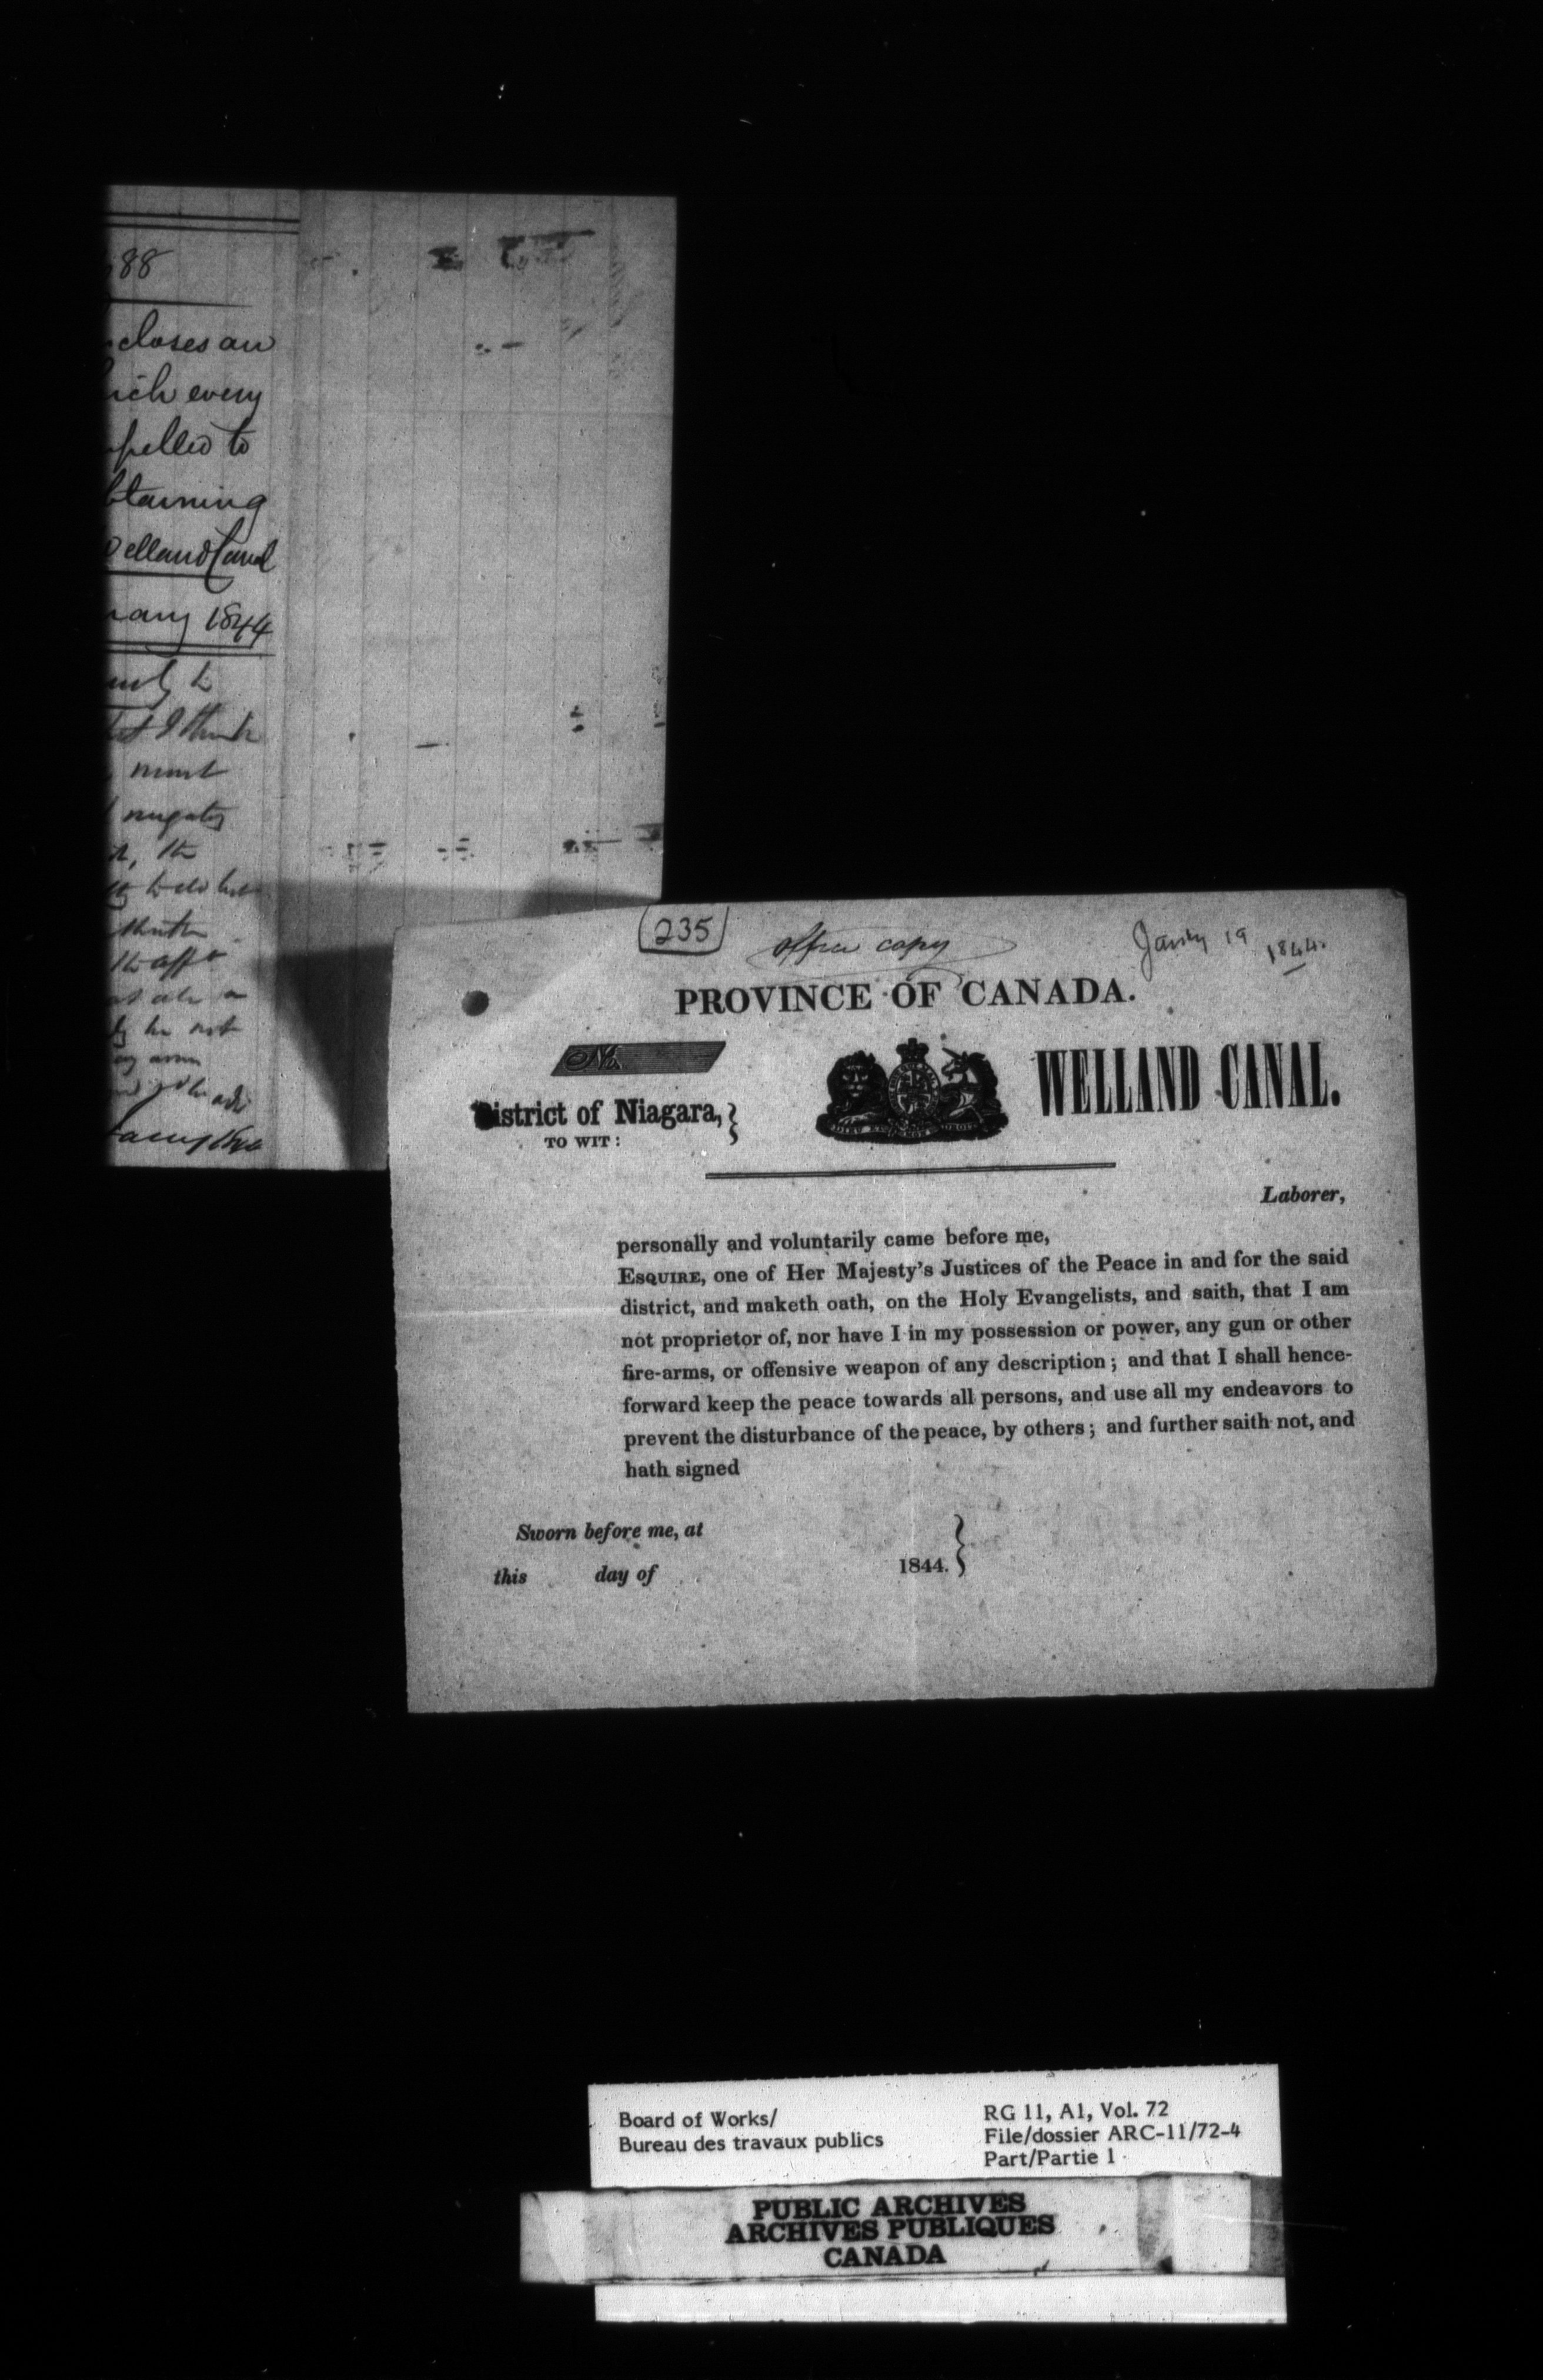 88
closes an
ich every
pelled to
btaining
elland Canal
uary 1844
I think
must
nugatory
the
235
office copy
Janry 19 1844.
PROVINCE OF CANADA.
No.
WELLAND CANAL.
District of Niagara,}
TO WIT:
Laborer,
personally and voluntarily came before me,
ESQUIRE, one of Her Majesty's Justices of the Peace in and for the said
district, and maketh oath, on the Holy Evangelists, and saith, that I am
not proprietor of, nor have I in my possession or power, any gun or other
fire-arms, or offensive weapon of any description; and that I shall hence-
forward keep the peace towards all persons, and use all my endeavors to
prevent the disturbance of the peace, by others; and further saith not, and
hath signed
Sworn before me, at
this day of 1844.}
Board of Works/
Bureau des travaux publics
RG 11, A1, Vol. 72
File/dossier ARC-11/72-4
Part/Partie 1
PUBLIC ARCHIVES
ARCHIVES PUBLIQUES
CANADA